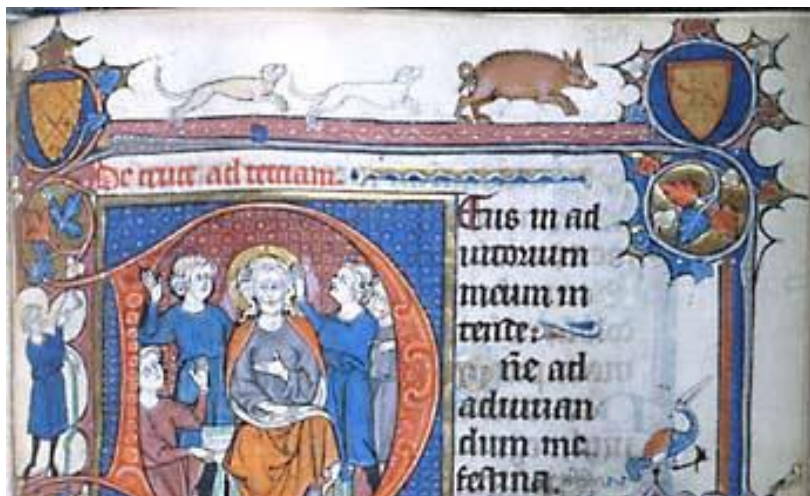 De cruce ad terciam.
Eus in ad
iutorium
meum in
tende:
ñe ad
adiuuan
dum me
festina.